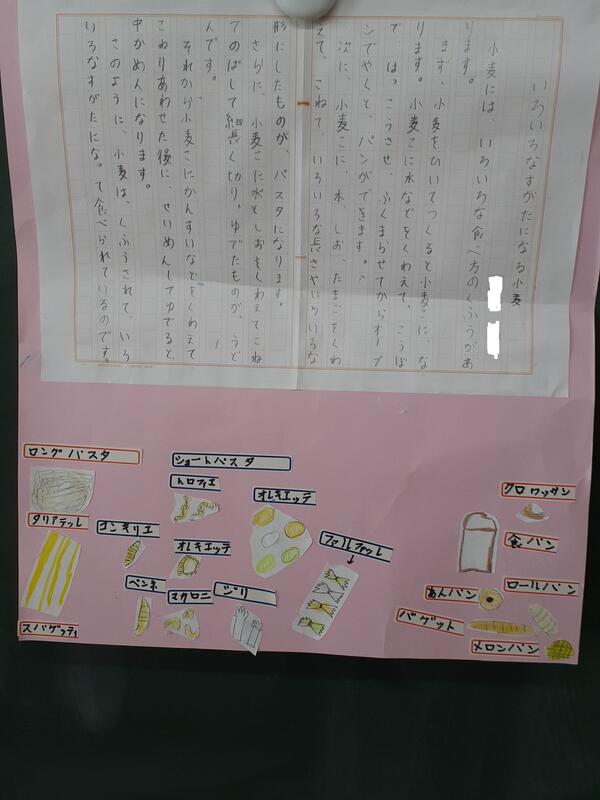 いろいろなすがたになる小麦
小麦には、いろいろな食べ方のくふうがあ
ります。
まず、小麦をひいてつくると小麦こに、な
ります。小麦こに水などをくわえて、こうぼ
で、は。こうさせ、ふくまらせてからオーブ
ンでやくと、パンができます。
次に、小麦こに、水、しお、たまごをくわ
えて、こねて、いろいろな長さやいろいろな
形にしたものが、パスタになります。
さらに、小麦こに水としおをくわえてこね
てのばして細長く切り。ゆでたものが、うど
んです。
それから小麦こにかんすいなどをくわえて
こわりあわせた後に、せいめんしてゆでると、
中かめんになります。
このように、小麦は、くふうされて、いろ
いろなすがたになって食べられているのです。
ロングパスタ
ショートパスタ
トロフィエ
オレキエッテ
タリアテッレ
コンキリエ
オレキエッテ
ファルファッレ
ペンネ
マカロニ
ジリ
スパゲッティ
クロワッサン
食パン
あんパン
ロールパン
バゲット
メロンパン